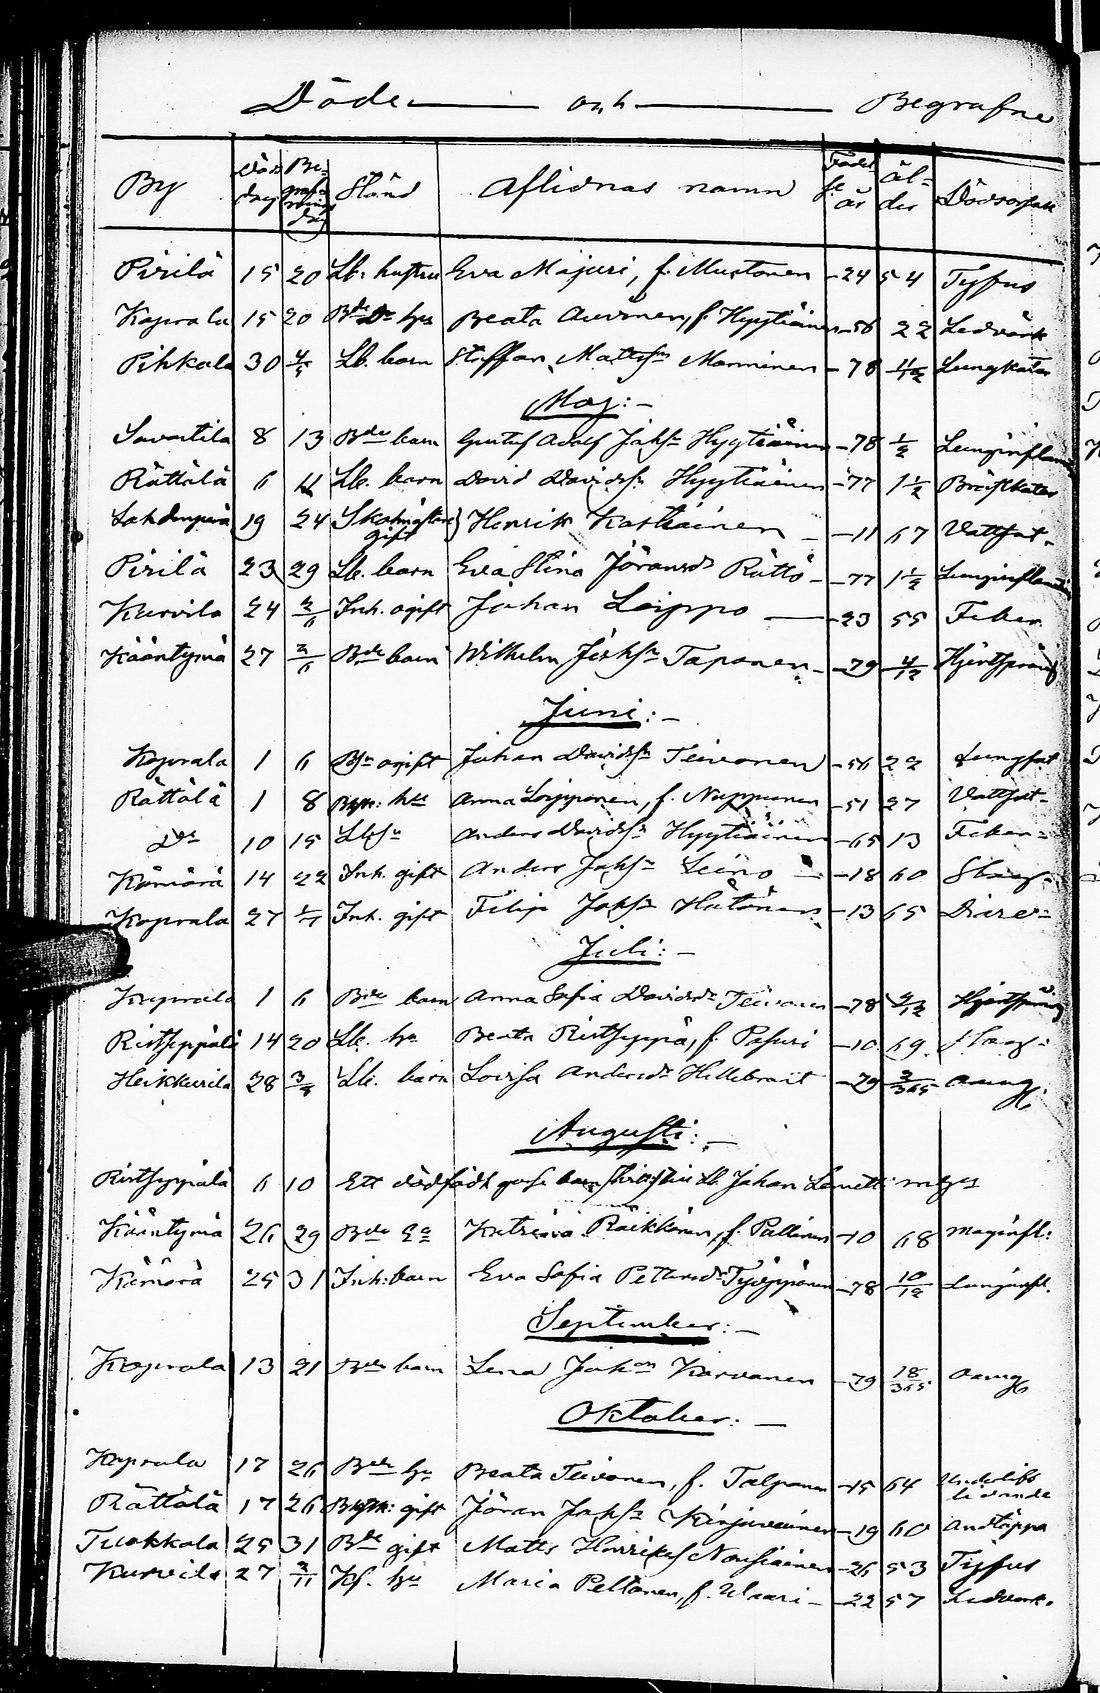 Döde och Begrafne
By Döds dag Be- grafnings dag Stånd Aflidnas namn Född år ål- der Dödsorsak
Pirilä 15 20 Lb. hustru Eva Majuri, f. Mustonen -24 54 Tyfus
Kaprala 15 20 Beata Auvinen, f. Hyytiäinen -56 22 Ledvärk
Pihkala 30 4/5 Lb. barn Staffan Mattss. Manninen -78 Lungkatar
Maj:-
Savastila 8 13 Bde barn Gustaf Adolf Jakss. Hyytiäinen -78 1/2 Lunginflam
Rättälä 6 11 Lb. barn David Davidss. Hyytiäinen -77 1 1/2 Bröstkatar
19 24 gift Henrik Kostiainen -11 67 Vattsot-
Pirilä 23 29 Lb. barn Eva Stina Jöransdr Rättö -77 1 1/2 Lunginflam
Kurvila 24 2/6 Inh. ogift Johan Loippo -23 55 Feber
Kääntymä 27 2/6 Bde barn Wilhelm Jakss. Taponen -79 4/12 Hjertspräng
Juni:-
Kaprala 1 6 Bsn ogift Johan Davidss. Teivonen -56 22 Lungsot
Rättälä 1 8 hu Anna Loipponen, f. Nupponen -51 27 Vattsot-
Do 10 15 Lbsn Anders Davidss. Hyytiäinen -65 13 Feber-
Kämärä 14 22 Inh. gift Anders Jakss. Leino -18 60 Slag-
Kaprala 27 1/7 Inh. gift Filip Jakss. Hätönen -13 65 Diare-
Juli:-
Kaprala 1 6 Bde barn Anna Sofia Davidsdr Teivonen -78 9/12 Hjertspräng
Ristseppälä 14 20 Lb. hu Beata Ristseppä, f. Pasuri -10 69 Slag-
Heikkurila 28 3/8 Lb. barn Lovisa Andersdr Hillebrant -79 2/365 okung
Augusti:-
Ristseppälä 6 10 Ett dödfödt barn Lb Johan Lemetti
Kääntymä 26 29 Bde Ea Katrina Räikkönen, f. Pullinen -10 68 Maginfl:
Kämärä 25 31 Inh: barn Eva Sofia Pettersdr Tyyppönen -78 10/12 Lunginfl.
September:-
Kaprala 13 21 Bdes barn Lena Jakon Karvanen -79 18/365 okung
Oktober:-
Kaprala 17 26 Bde hu Beata Teivonen, f. Talponen -15 64 Underlifs lidande
Rättälä 17 26 gift Jöran Jakss. Kinjavainen -19 60 Andtäppa
Tuokkola 25 31 Bde gift Matts Henriks. Nousiainen -26 53 Tyfus
Kurvila 27 2/11 Kf. hu Maria Peltonen, f. Ukaari -22 57 Ledvärk.